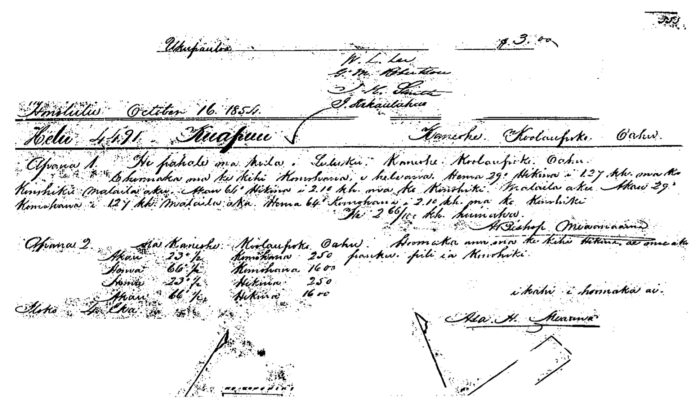 353
Ukupaulia $3.00
W. L. Lee
G. M. Robertson
J. H. Smith
J. Kekaulahao
Honolulu October 16. 1854.
Helu 4491. Kuapuu Kaneohe. Koolaupoko. Oahu.
Apana 1. He pahale ma kula i Kaneohe. Koolaupoko. Oahu.
E hoomaka ma ke kihi Komohana, e holo ana Hema 29° Hikina i 1.27 kh. ma ko
Konohiki. Malaila aku Akau 64° Hikina i 2.10 kh. ma ko Konohiki. Malaila aku Akau 29°
Komohana i 1.27 kh. Malaila aku Hema 64° Komohana i 2.10 kh. ma ko Konohiki
He 2 66/100 kh. kuea
A Bishop Mea anaaina
Apana 2. ma Kaneohe. Koolaupoko. Oahu. Hoomaka ana ma ke kihi Hikina, ae
Akau 23° ½ Komohana 250 pauku. pili i ka Konohiki.
Hema 66° ½ Komohana 1600
Hema 23° ½ Hikina 250
Akau 66° ½ Hikina 1600 i kahi i hoomaka ai.
Iloko 4 Eka
Asa H.